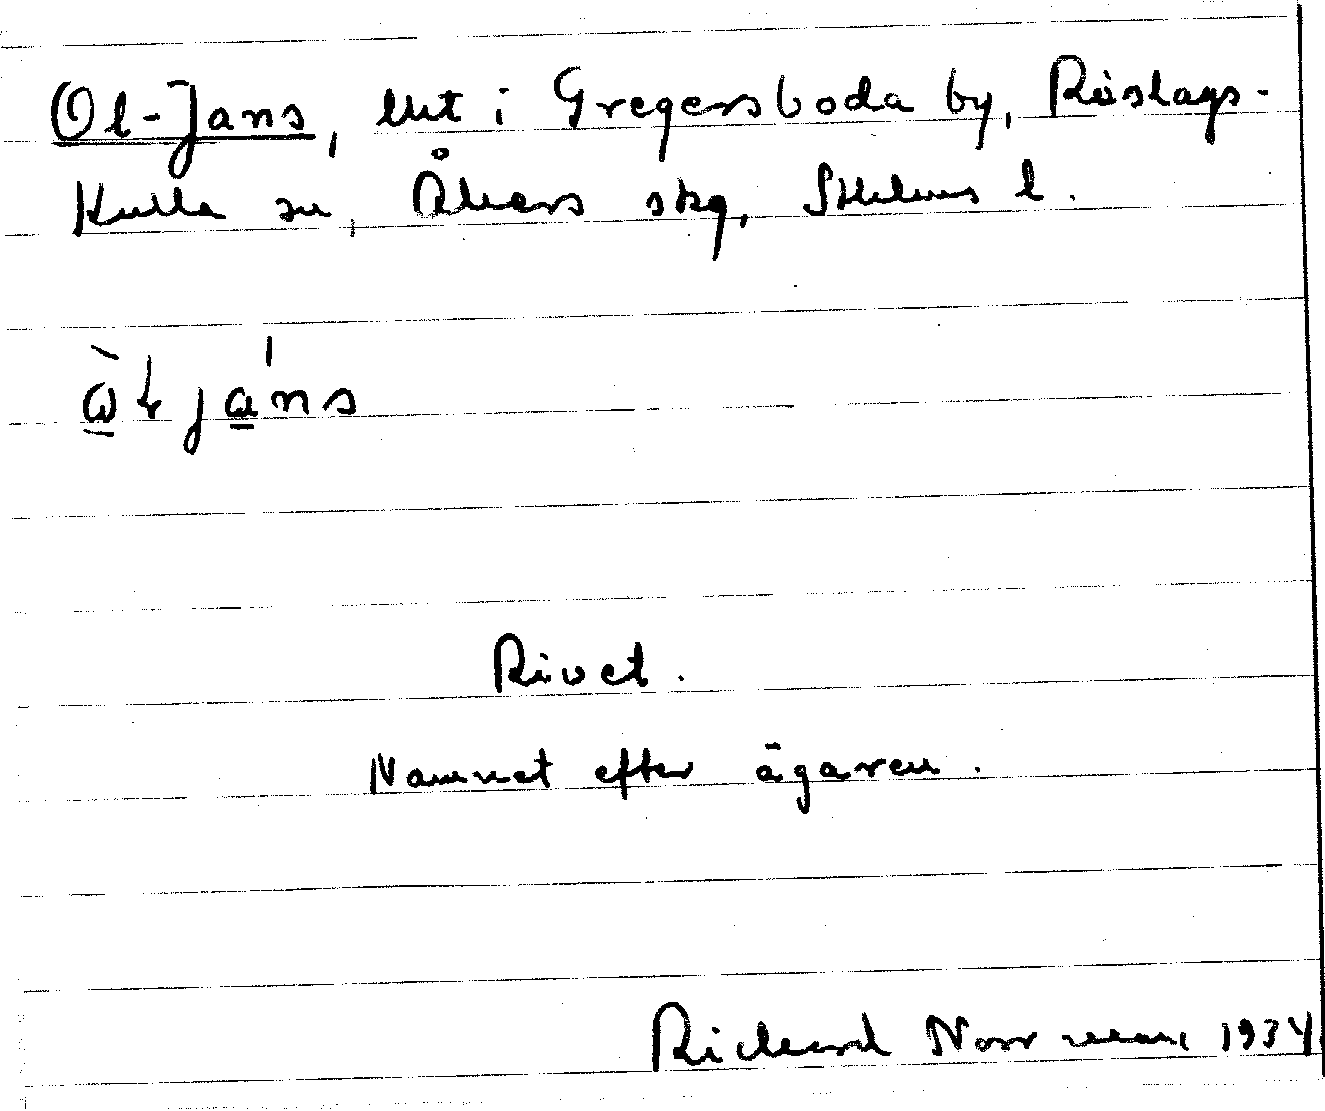 Ol-Jans, lht i Gregersboda by, Roslags-
Kulla sn, Åkers skg, Sthlms l.
Rivet.
Namnet efter ägaren.
Richard Norrman 1934